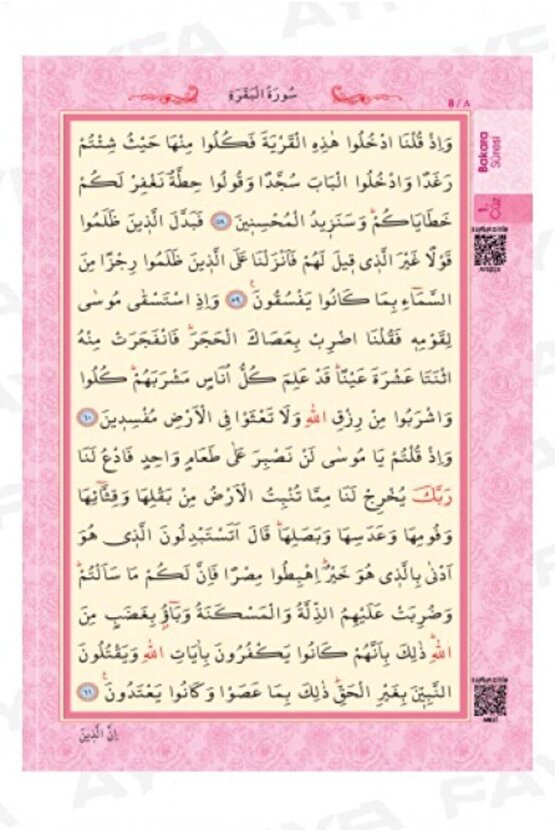 سُورَةُ الْبَقَرَةِ
8 / ٨
Bakara
Sûresi
1.
Cüz
وَاِذْ قُلْنَا ادْخُلُوا هٰذِهِ الْقَرْيَةَ فَكُلُوا مِنْهَا حَيْثُ شِئْتُمْ
رَغَدًا وَادْخُلُوا الْبَابَ سُجَّدًا وَقُولُوا حِطَّةٌ نَغْفِرْ لَكُمْ
خَطَايَاكُمْۜ وَسَنَزِيدُ الْمُحْسِنِينَ ٥٨ فَبَدَّلَ الَّذِينَ ظَلَمُوا
قَوْلًا غَيْرَ الَّذِي قِيلَ لَهُمْ فَاَنْزَلْنَا عَلَى الَّذِينَ ظَلَمُوا رِجْزًا مِنَ
السَّمَٓاءِ بِمَا كَانُوا يَفْسُقُونَ۟ ٥٩ وَاِذِ اسْتَسْقٰى مُوسٰى
لِقَوْمِهِ فَقُلْنَا اضْرِبْ بِعَصَاكَ الْحَجَرَۜ فَانْفَجَرَتْ مِنْهُ
اثْنَتَا عَشْرَةَ عَيْنًاۜ قَدْ عَلِمَ كُلُّ اُنَاسٍ مَشْرَبَهُمْۜ كُلُوا
وَاشْرَبُوا مِنْ رِزْقِ اللّٰهِ وَلَا تَعْثَوْا فِي الْاَرْضِ مُفْسِدِينَ ٦٠
وَاِذْ قُلْتُمْ يَا مُوسٰى لَنْ نَصْبِرَ عَلٰى طَعَامٍ وَاحِدٍ فَادْعُ لَنَا
رَبَّكَ يُخْرِجْ لَنَا مِمَّا تُنْبِتُ الْاَرْضُ مِنْ بَقْلِهَا وَقِثَّٓائِهَا
وَفُومِهَا وَعَدَسِهَا وَبَصَلِهَاۜ قَالَ اَتَسْتَبْدِلُونَ الَّذِي هُوَ
اَدْنٰى بِالَّذِي هُوَ خَيْرٌۜ اِهْبِطُوا مِصْرًا فَاِنَّ لَكُمْ مَا سَاَلْتُمْۜ
وَضُرِبَتْ عَلَيْهِمُ الذِّلَّةُ وَالْمَسْكَنَةُ وَبَٓاؤُ بِغَضَبٍ مِنَ
اللّٰهِۜ ذٰلِكَ بِاَنَّهُمْ كَانُوا يَكْفُرُونَ بِاٰيَاتِ اللّٰهِ وَيَقْتُلُونَ
النَّبِيّٖنَ بِغَيْرِ الْحَقِّۜ ذٰلِكَ بِمَا عَصَوْا وَكَانُوا يَعْتَدُونَ۟ ٦١
اِنَّ الَّذِينَ